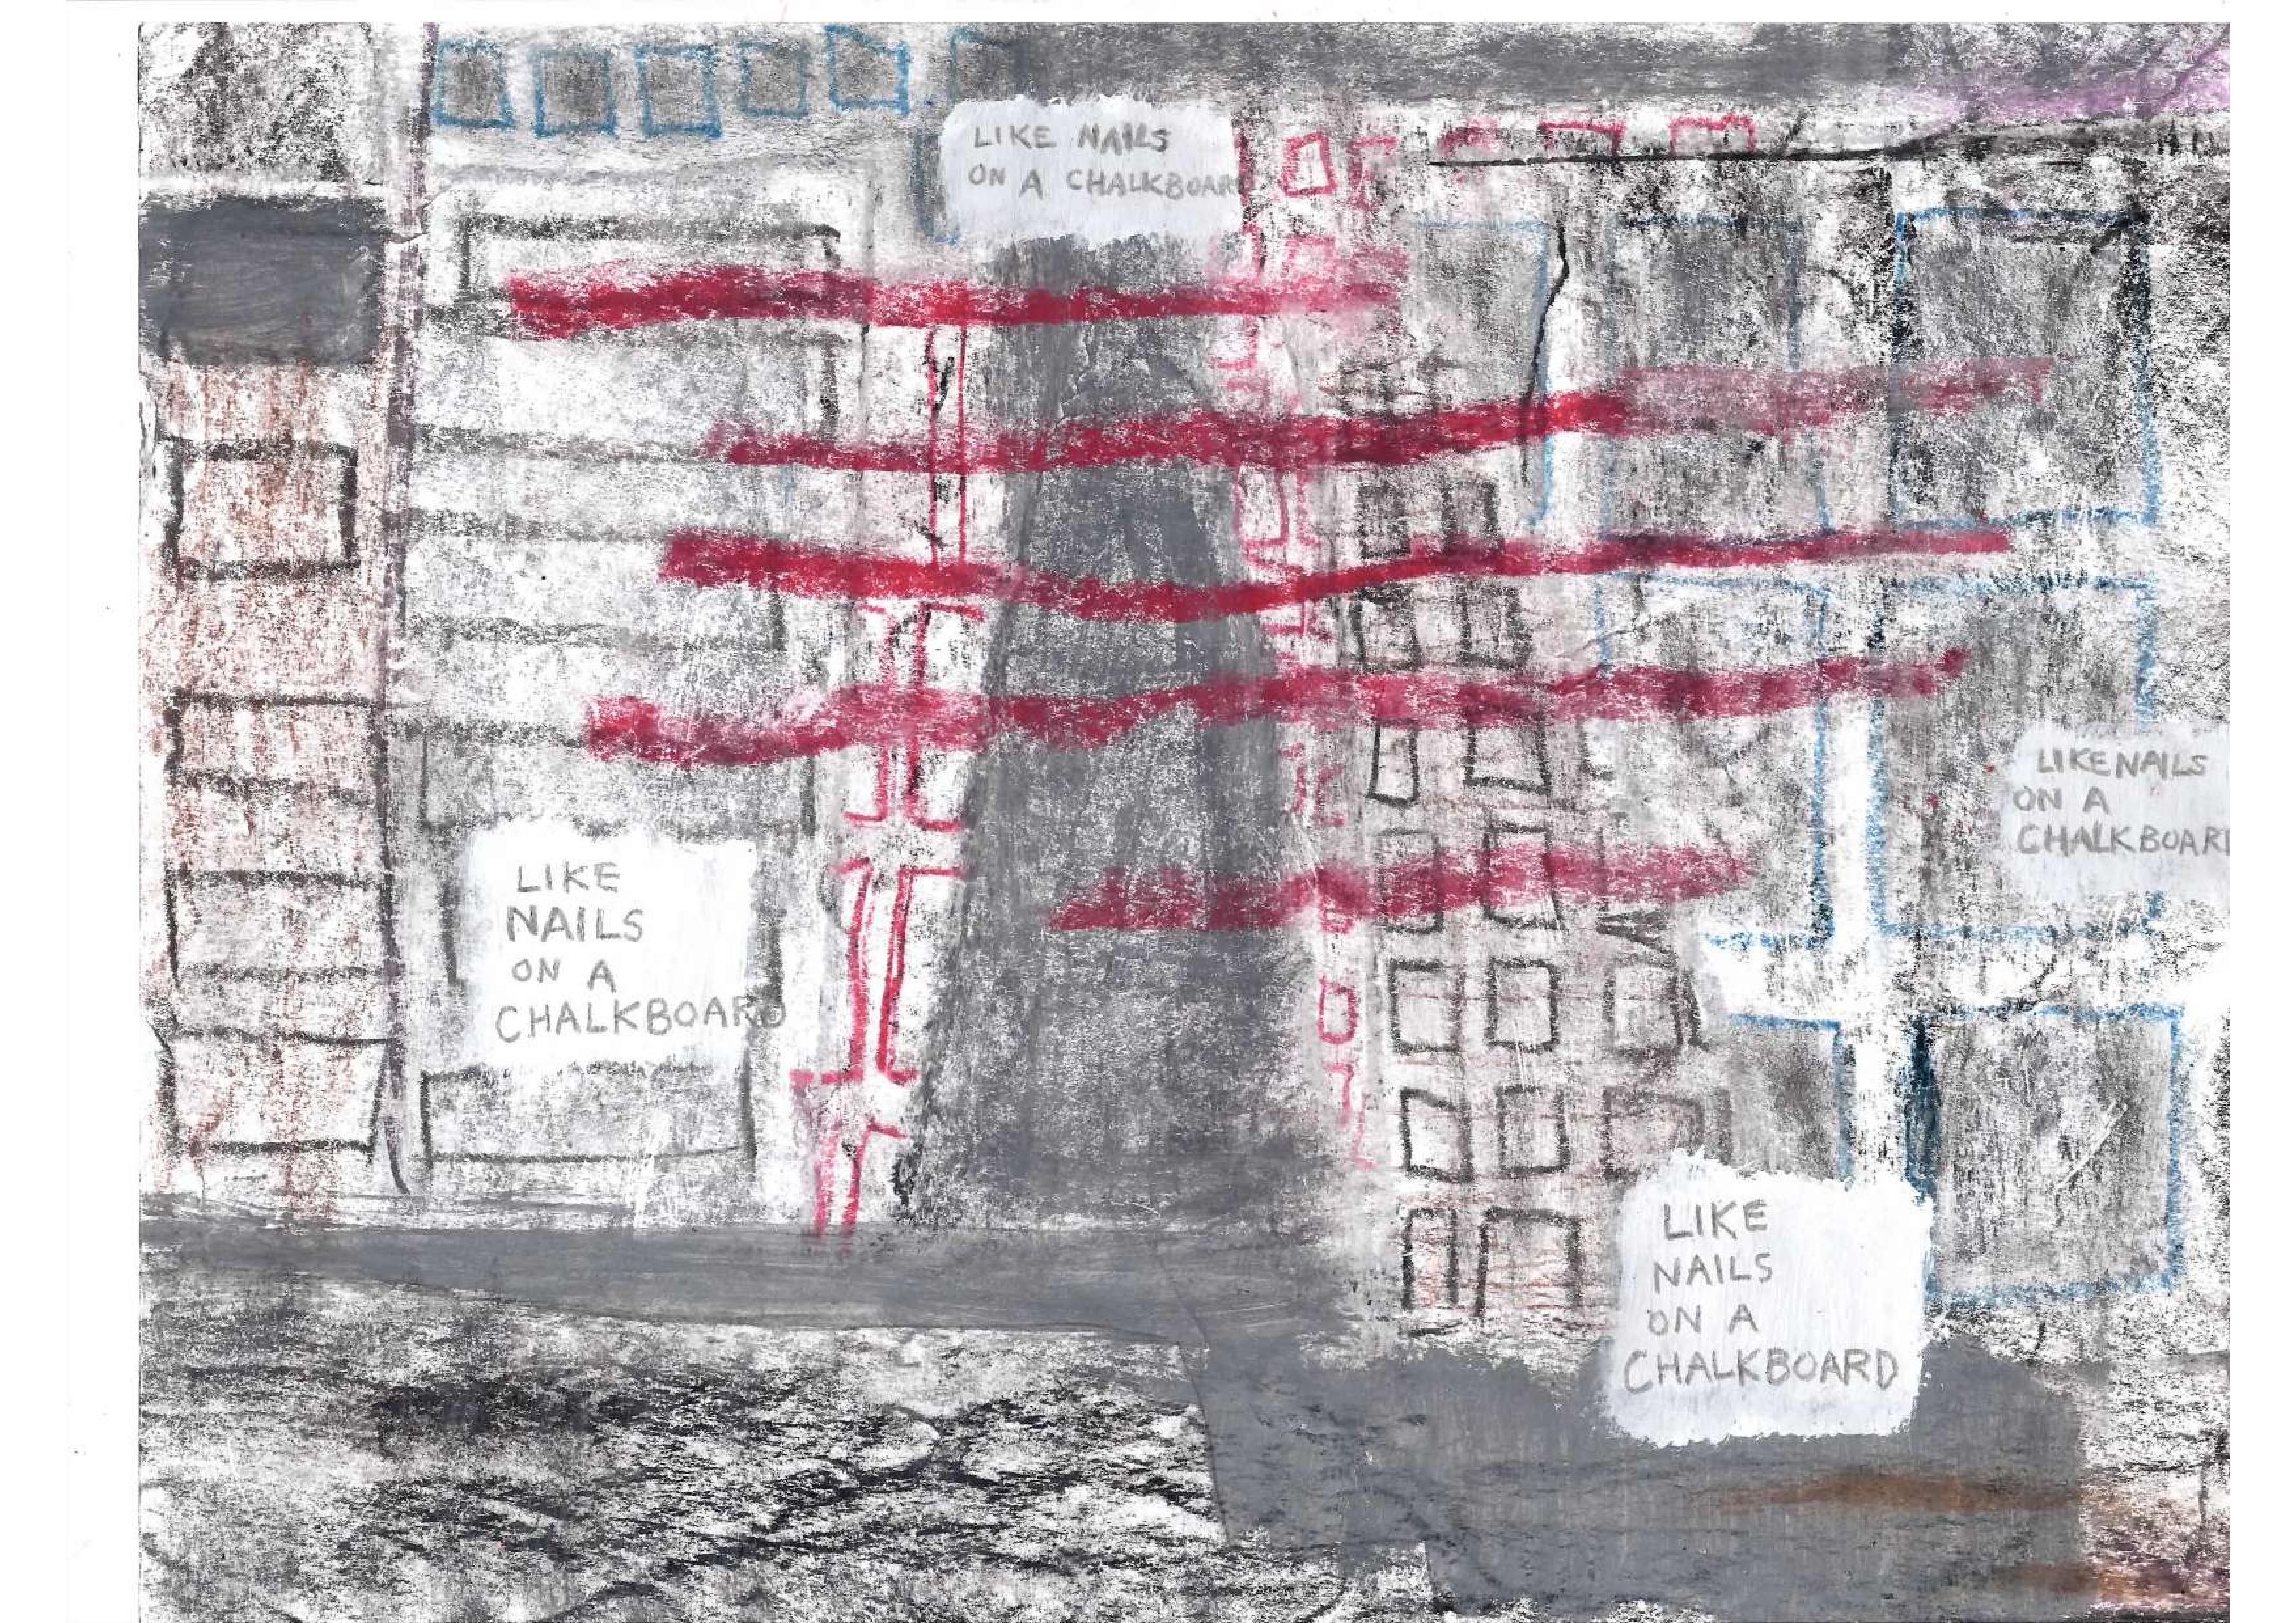 LIKE NAILS
ON A CHALKBOARD
LIKE NAILS
ON A
CHALKBOARD
LIKE
NAILS
ON A
CHALKBOARD
LIKE
NAILS
ON A
CHALKBOARD